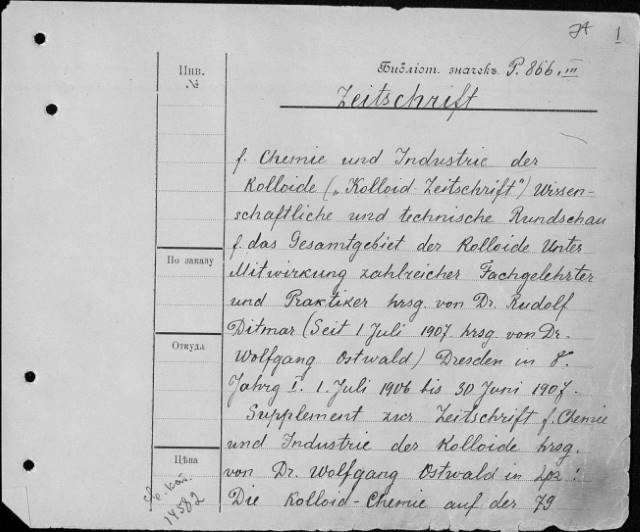 1
Инв. №
Библіот. значекъ P. 866. III
Zeitschrift
f. Chemie und Industrie der
Kolloide („Kolloid-Zeitschrift") Wissen-
schaftliche und technische Rundschau
f. das Gesamtgebiet der Kolloide Unter
Mitwirkung zahlreicher Fachgelehrter
und Praktiker hrsg. von Dr. Rudolf
Ditmar (Seit 1 Juli 1907 hrsg von Dr.
Wolfgang Ostwald) Dresden in 8°.
Jahrg I. 1. Juli 1906 bis 30 Juni 1907.
Supplement zur Zeitschrift f. Chemie
und Industrie der Kolloide hrsg.
von Dr. Wolfgang Ostwald in Lpz:
Die Kolloid-Chemie auf der 79
По заказу
Откуда
Цѣна
14582